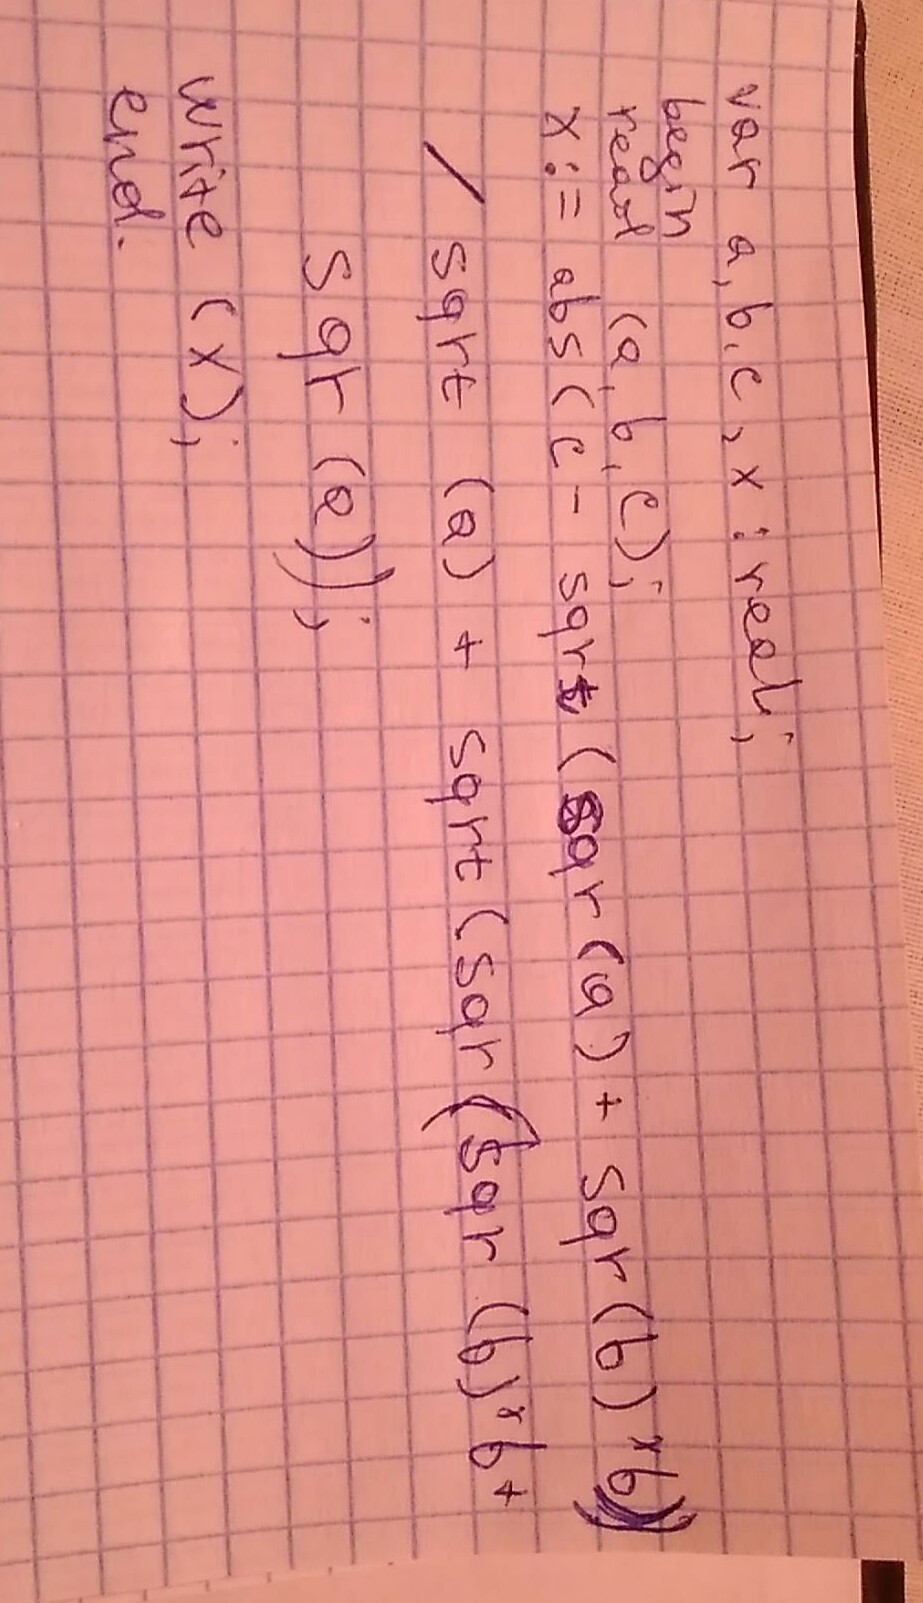 var a, b, c, x : real;
begin
read (a, b, c);
x := abs (c - sqrt (sqr (a) + sqr (b) * b))
/ sqrt (a) + sqrt (sqr (sqr (b) * b +
sqr (a));
write (x);
end.